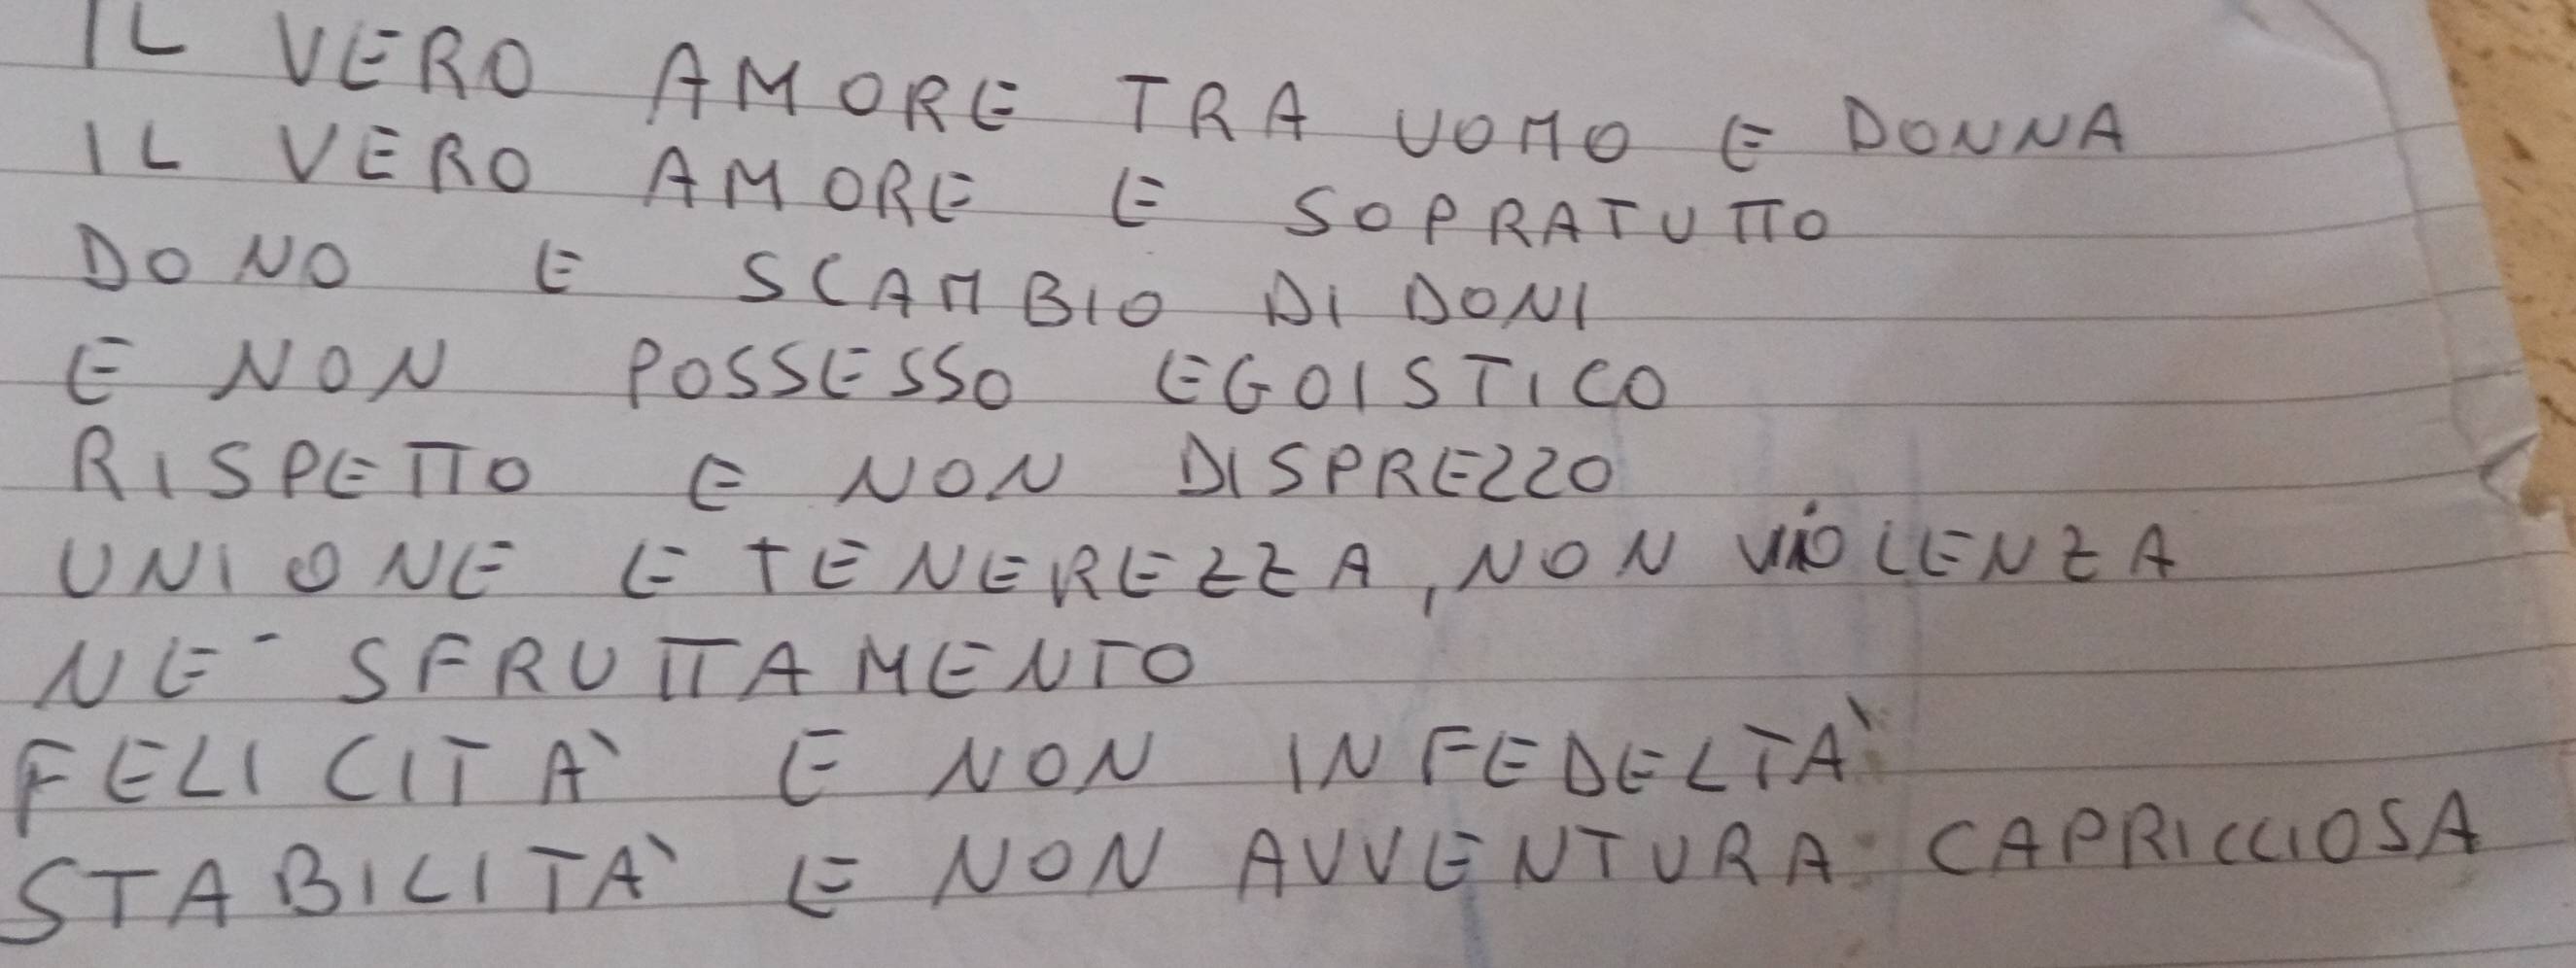 IL VERO AMORE TRA UOMO E DONNA
IL VERO AMORE E SOPRATUTTO
DONO E SCAMBIO DI DONI
E NON POSSESSO EGOISTICO
RISPETTO E NON DISPREZZO
UNIONE E TENEREZZA, NON VIOLENZA
NE' SFRUTTAMENTO
FELICITA' E NON INFEDELTA'
STABILITA' E NON AVVENTURA CAPRICCIOSA